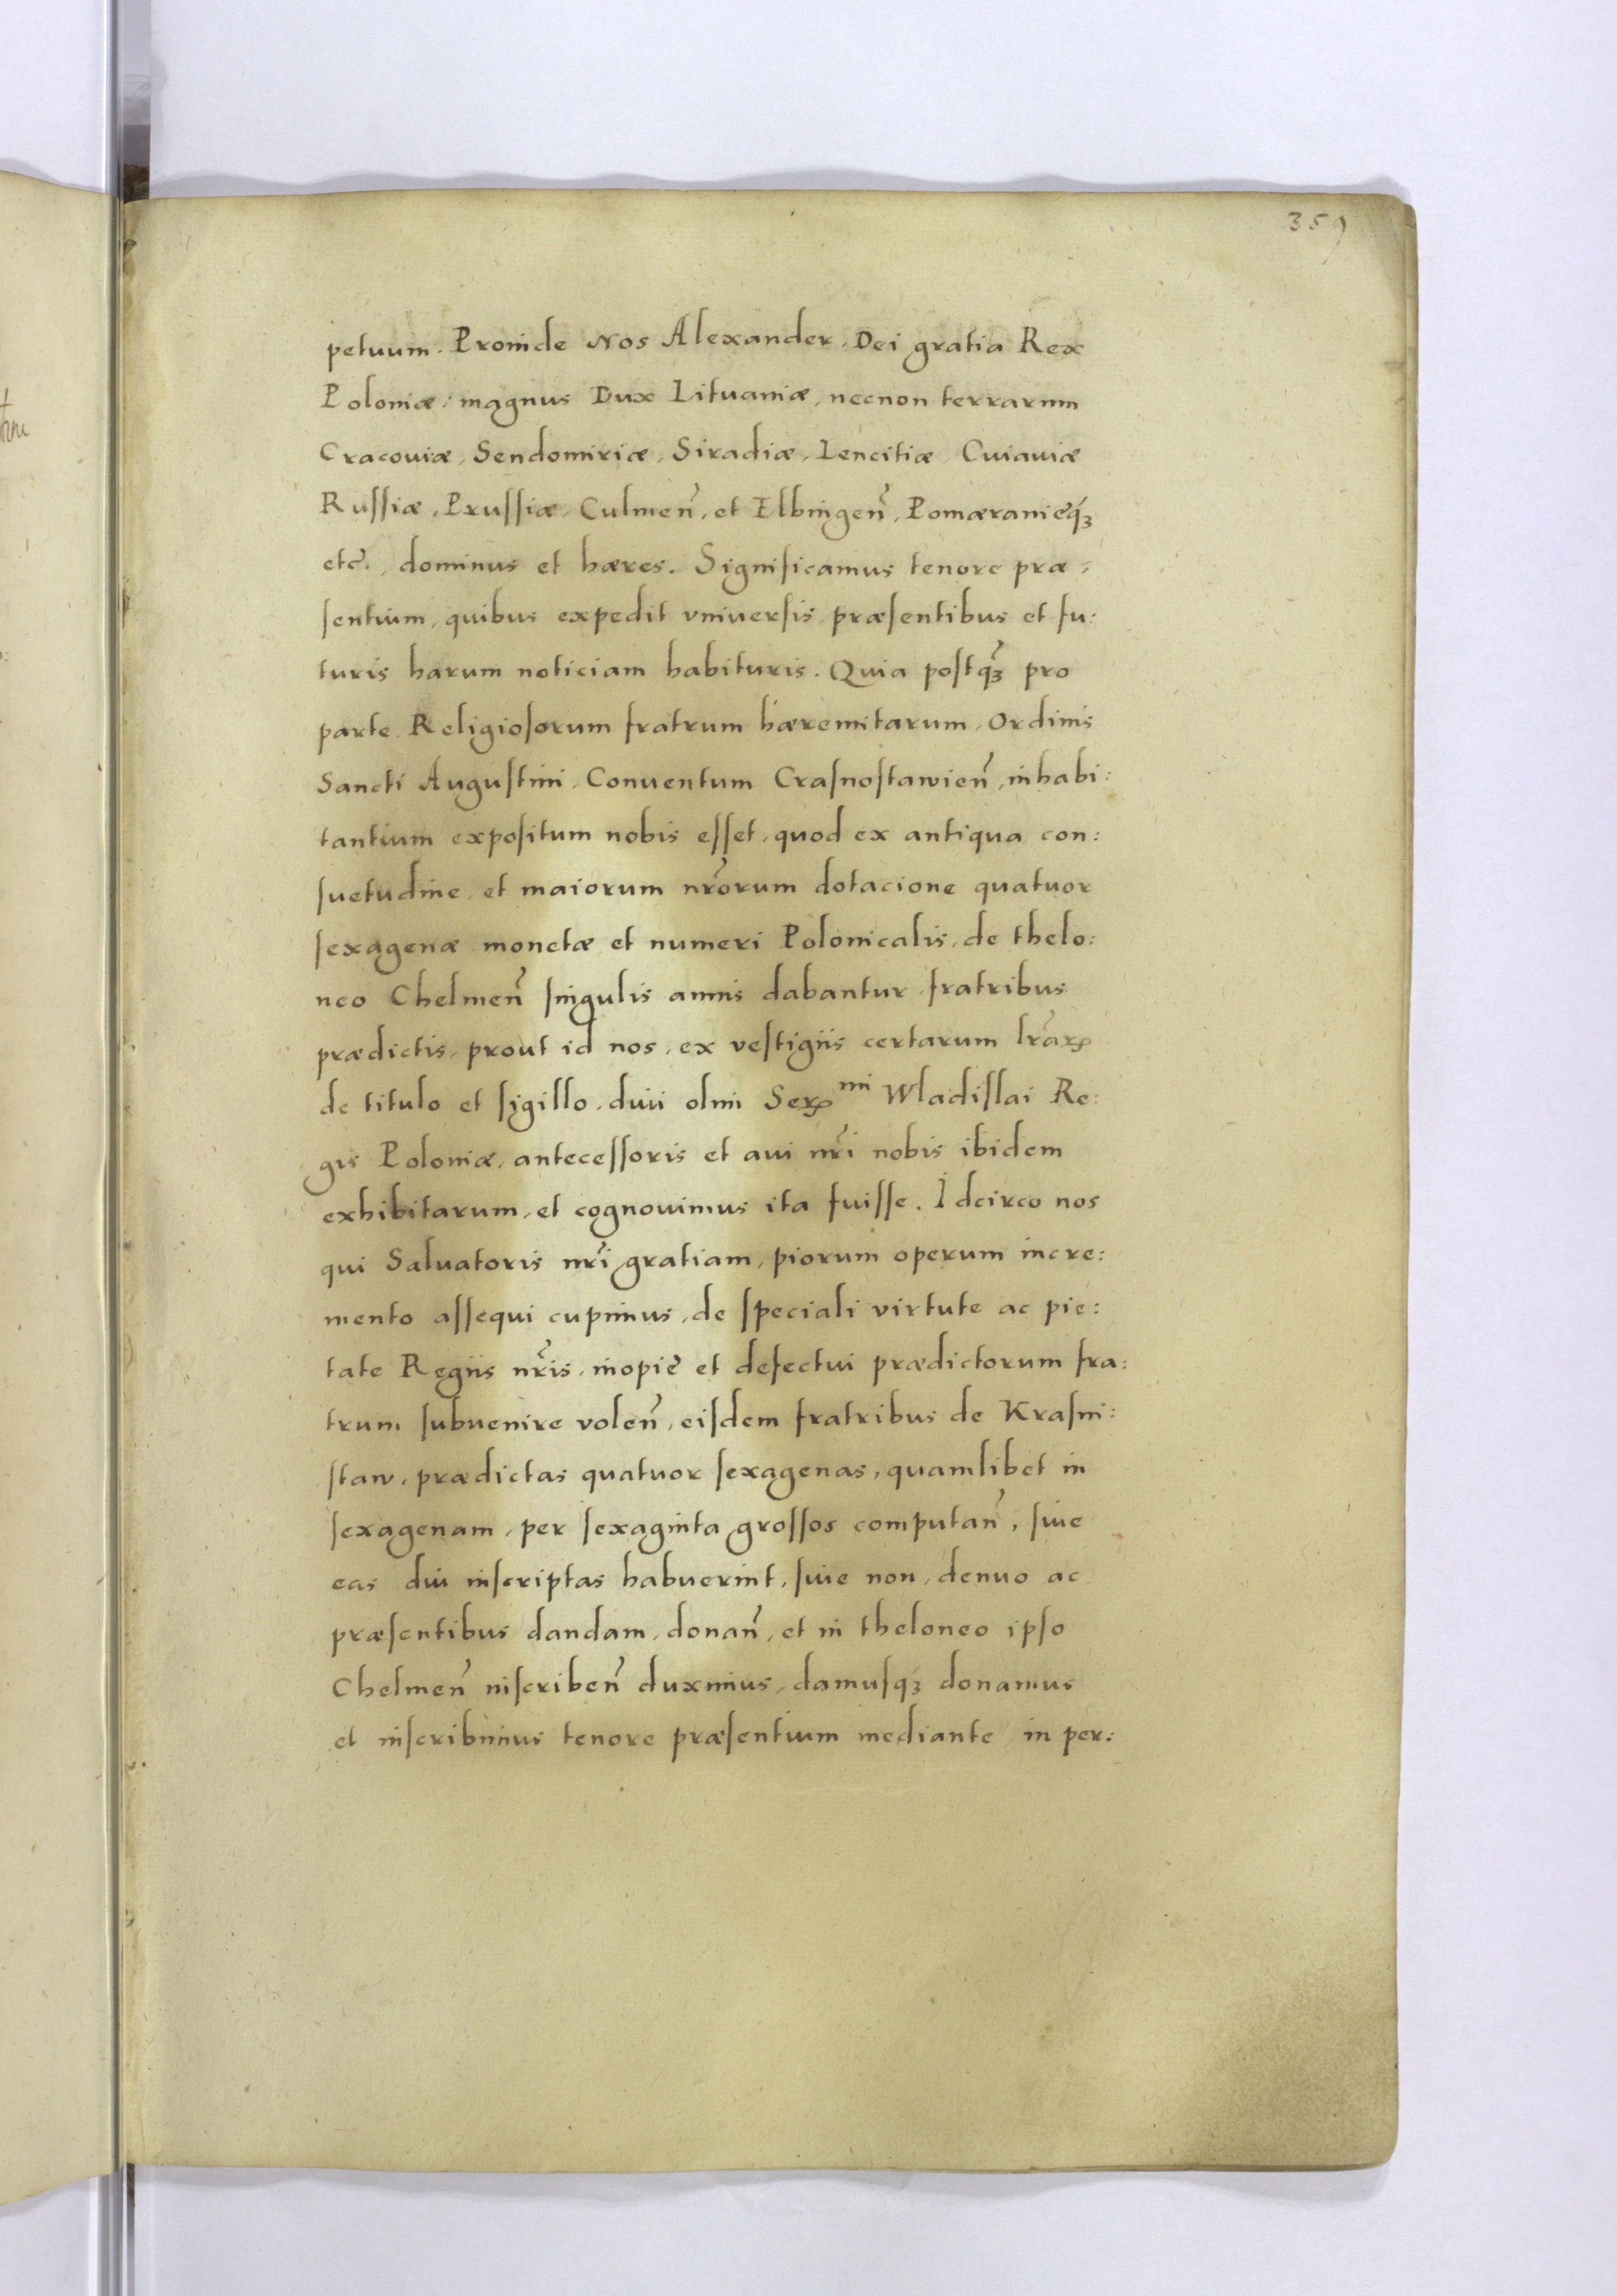 359
petuum. Proinde Nos Alexander, Dei gratia Rex
Poloniæ, magnus Dux Lituaniæ, necnon terrarum
Cracouiæ, Sendomiriæ, Siradiæ, Lencitiæ, Cuiauiæ
Ruſſiæ, Pruſſiæ, Culmen̄, et Elbingen̄, Pomæranieq́ꝫ
etc̄., dominus et hæres. Significamus tenore præ,
ſentium, quibus expedit vniuerſis, præſentibus et fu:
turis harum noticiam habituris. Quia poſtq̄ꝫ pro
parte Religioſorum fratrum hæremitarum, Ordinis
Sancti Auguſtini, Conuentum Craſnoſtawien̄, inhabi:
tantium expoſitum nobis eſſet, quod ex antiqua con:
ſuetudine, et maiorum nr̄orum dotacione quatuor
ſexagenæ monetæ et numeri Polonicalis, de thelo:
neo Chelmen̄ ſingulis annis dabantur fratribus
prædictis, prout id nos, ex veſtigiis certarum lr̄aꝝ
de titulo et ſigillo, diui olim Seꝝmi Wladiſlai Re:
gis Poloniæ, anteceſſoris et aui nr̄i nobis ibidem
exhibitarum, et cognouimus ita fuiſſe. Idcirco nos
qui Saluatoris nr̄i gratiam, piorum operum incre:
mento aſſequi cupimus, de ſpeciali virtute ac pie:
tate Regiis nr̄is, inopiē et defectui prædictorum fra:
trum ſubuenire volen̄, eiſdem fratribus de Kraſni:
ſtaw, prædictas quatuor ſexagenas, quamlibet in
ſexagenam, per ſexaginta groſſos computan̄, ſiue
eas diu inſcriptas habuerint, ſiue non, denuo ac
præſentibus dandam, donan̄, et in theloneo ipſo
Chelmen̄ inſcriben̄ duximus, damuſqꝫ donamus
et inſcribimus tenore præſentium mediante in per: